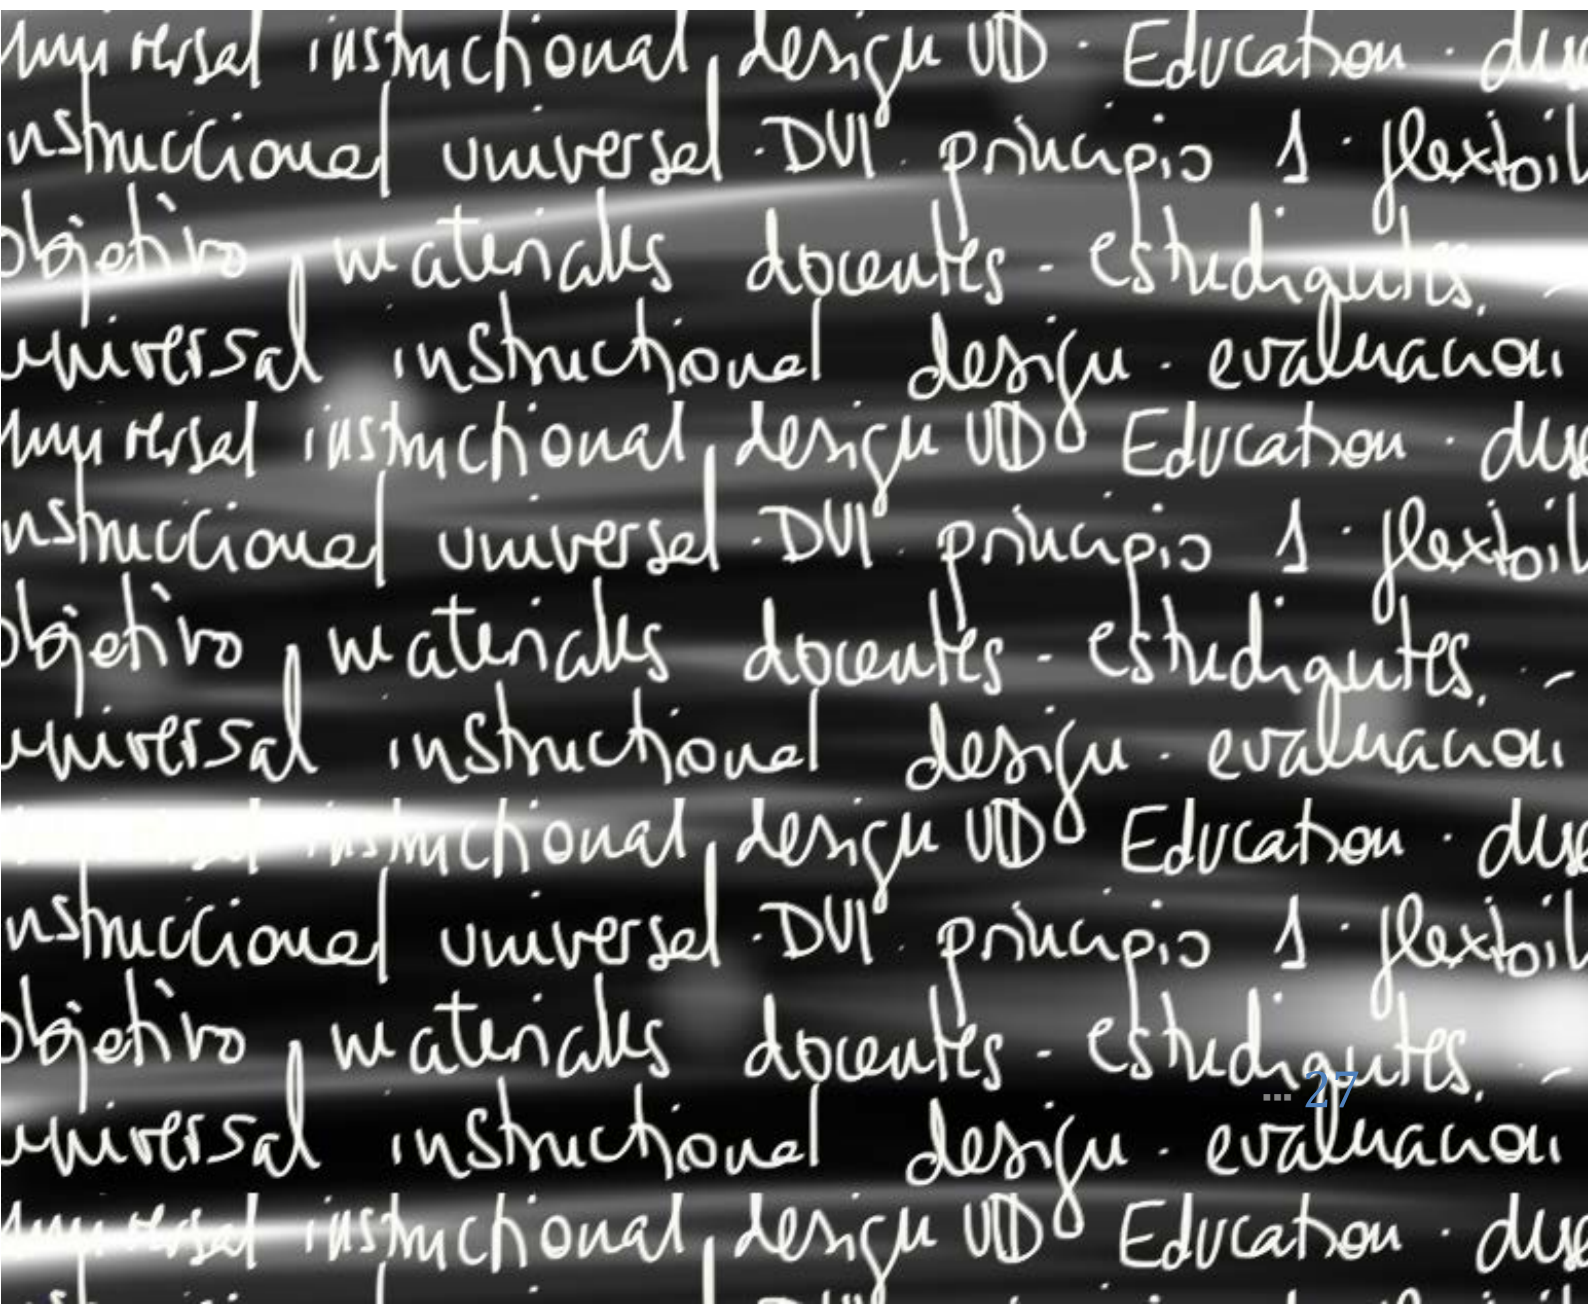 universal instructional design UID · Education · dise
nstruccional universal · DUI · principio 1 · flexibil
objetivo, materiales docentes - estudiantes. -
universal instructional design · evaluacion
universal instructional design UID Education · dise
nstruccional universal · DUI · principio 1 · flexibil
objetivo, materiales docentes - estudiantes. -
universal instructional design · evaluacion
instructional design UID Education · dise
nstruccional universal · DUI · principio 1 · flexibil
objetivo, materiales docentes - estudiantes. -
... 27
universal instructional design · evaluacion
universal instructional design UID Education · dise